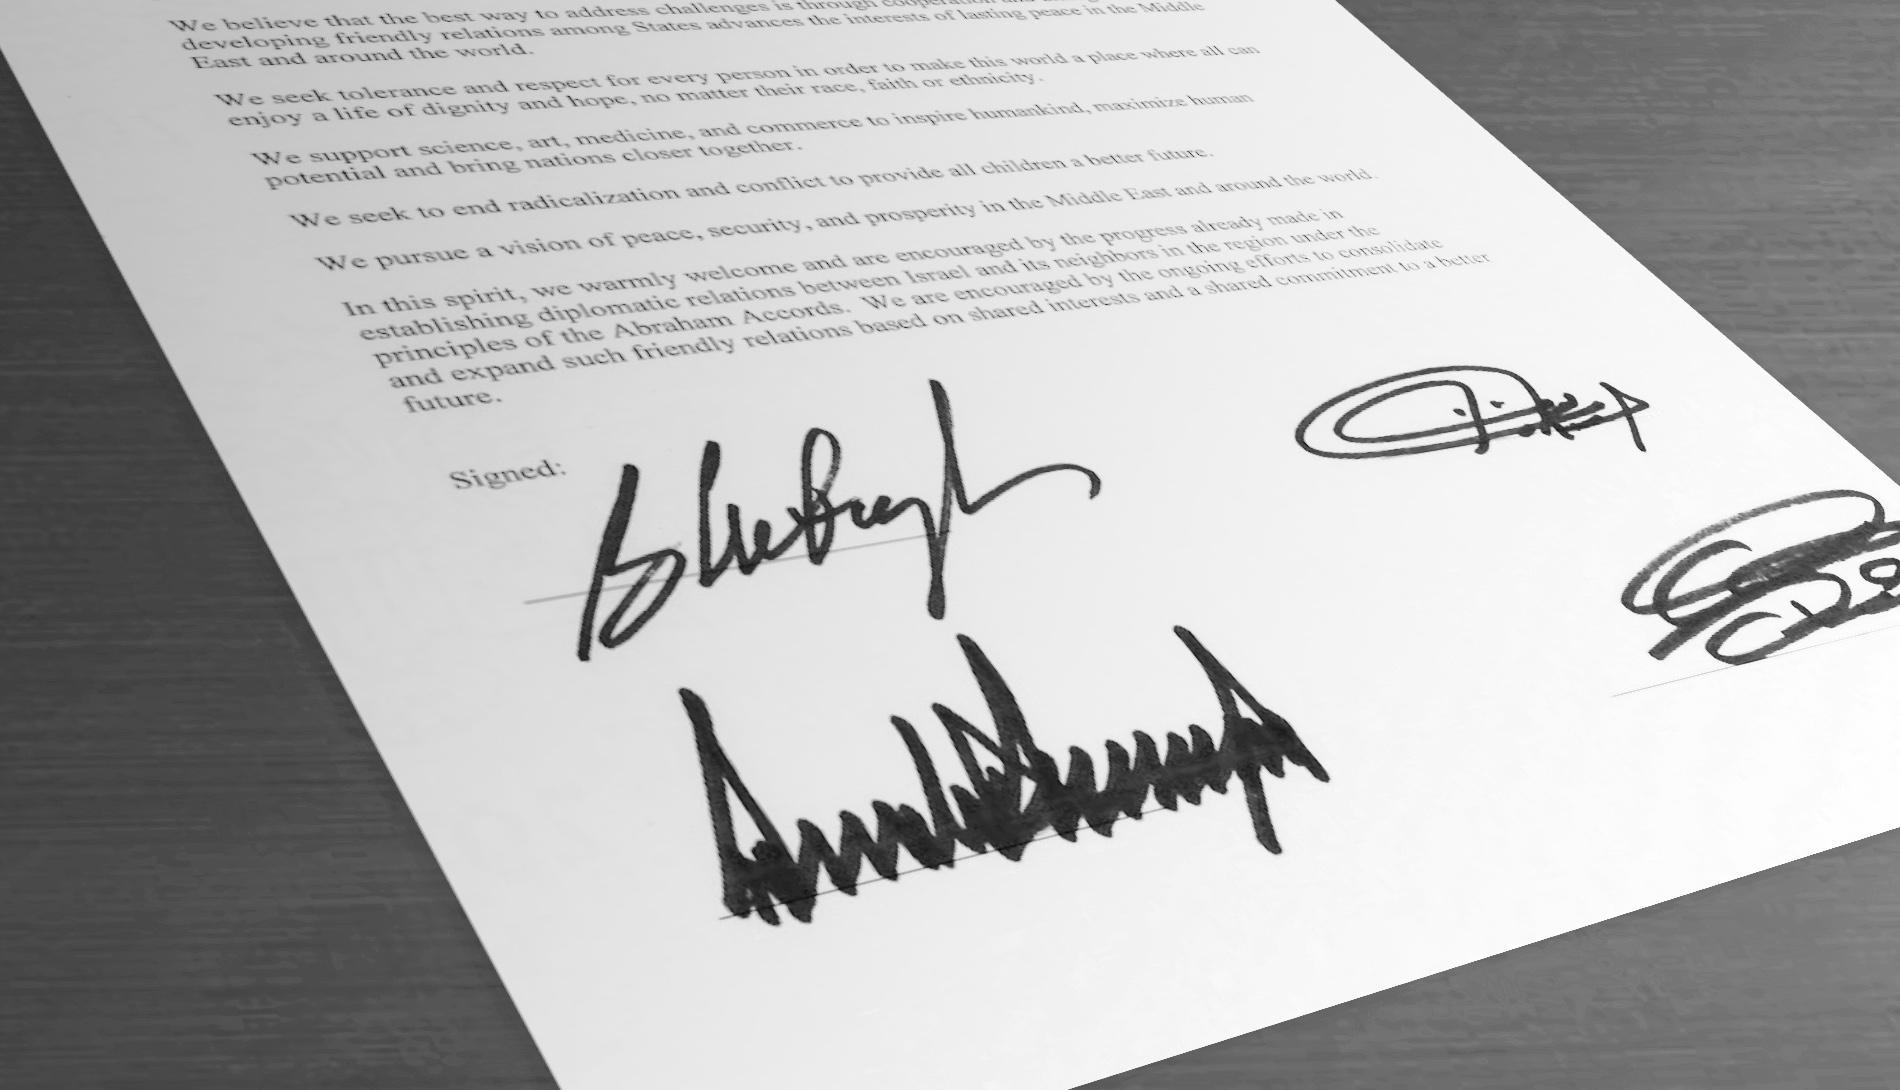 We believe that the best way to address challenges is through cooperation and
developing friendly relations among States advances the interests of lasting peace in the Middle
East and around the world.
We seek tolerance and respect for every person in order to make this world a place where all can
enjoy a life of dignity and hope, no matter their race, faith or ethnicity.
We support science, art, medicine, and commerce to inspire humankind, maximize human
potential and bring nations closer together.
We seek to end radicalization and conflict to provide all children a better future.
We pursue a vision of peace, security, and prosperity in the Middle East and around the world.
In this spirit, we warmly welcome and are encouraged by the progress already made in
establishing diplomatic relations between Israel and its neighbors in the region under the
principles of the Abraham Accords. We are encouraged by the ongoing efforts to consolidate
and expand such friendly relations based on shared interests and a shared commitment to a better
future.
Signed: